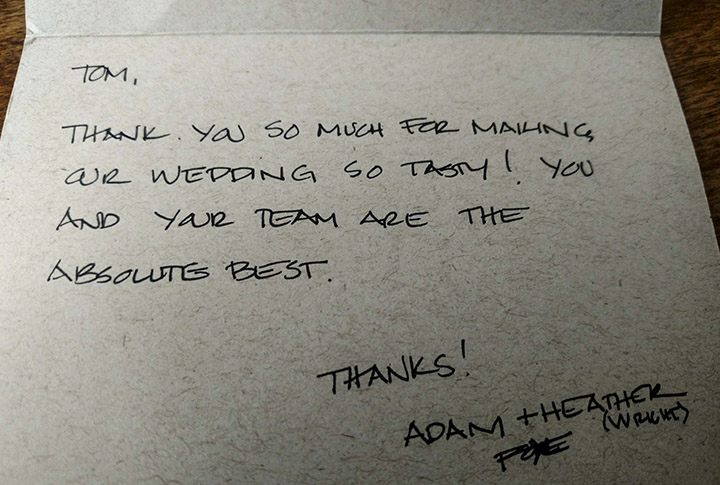 TOM,
THANK YOU SO MUCH FOR MAKING
OUR WEDDING SO TASTY! YOU
AND YOUR TEAM ARE THE
ABSOLUTE BEST.
THANKS!
ADAM + HEATHER
(WRIGHT)